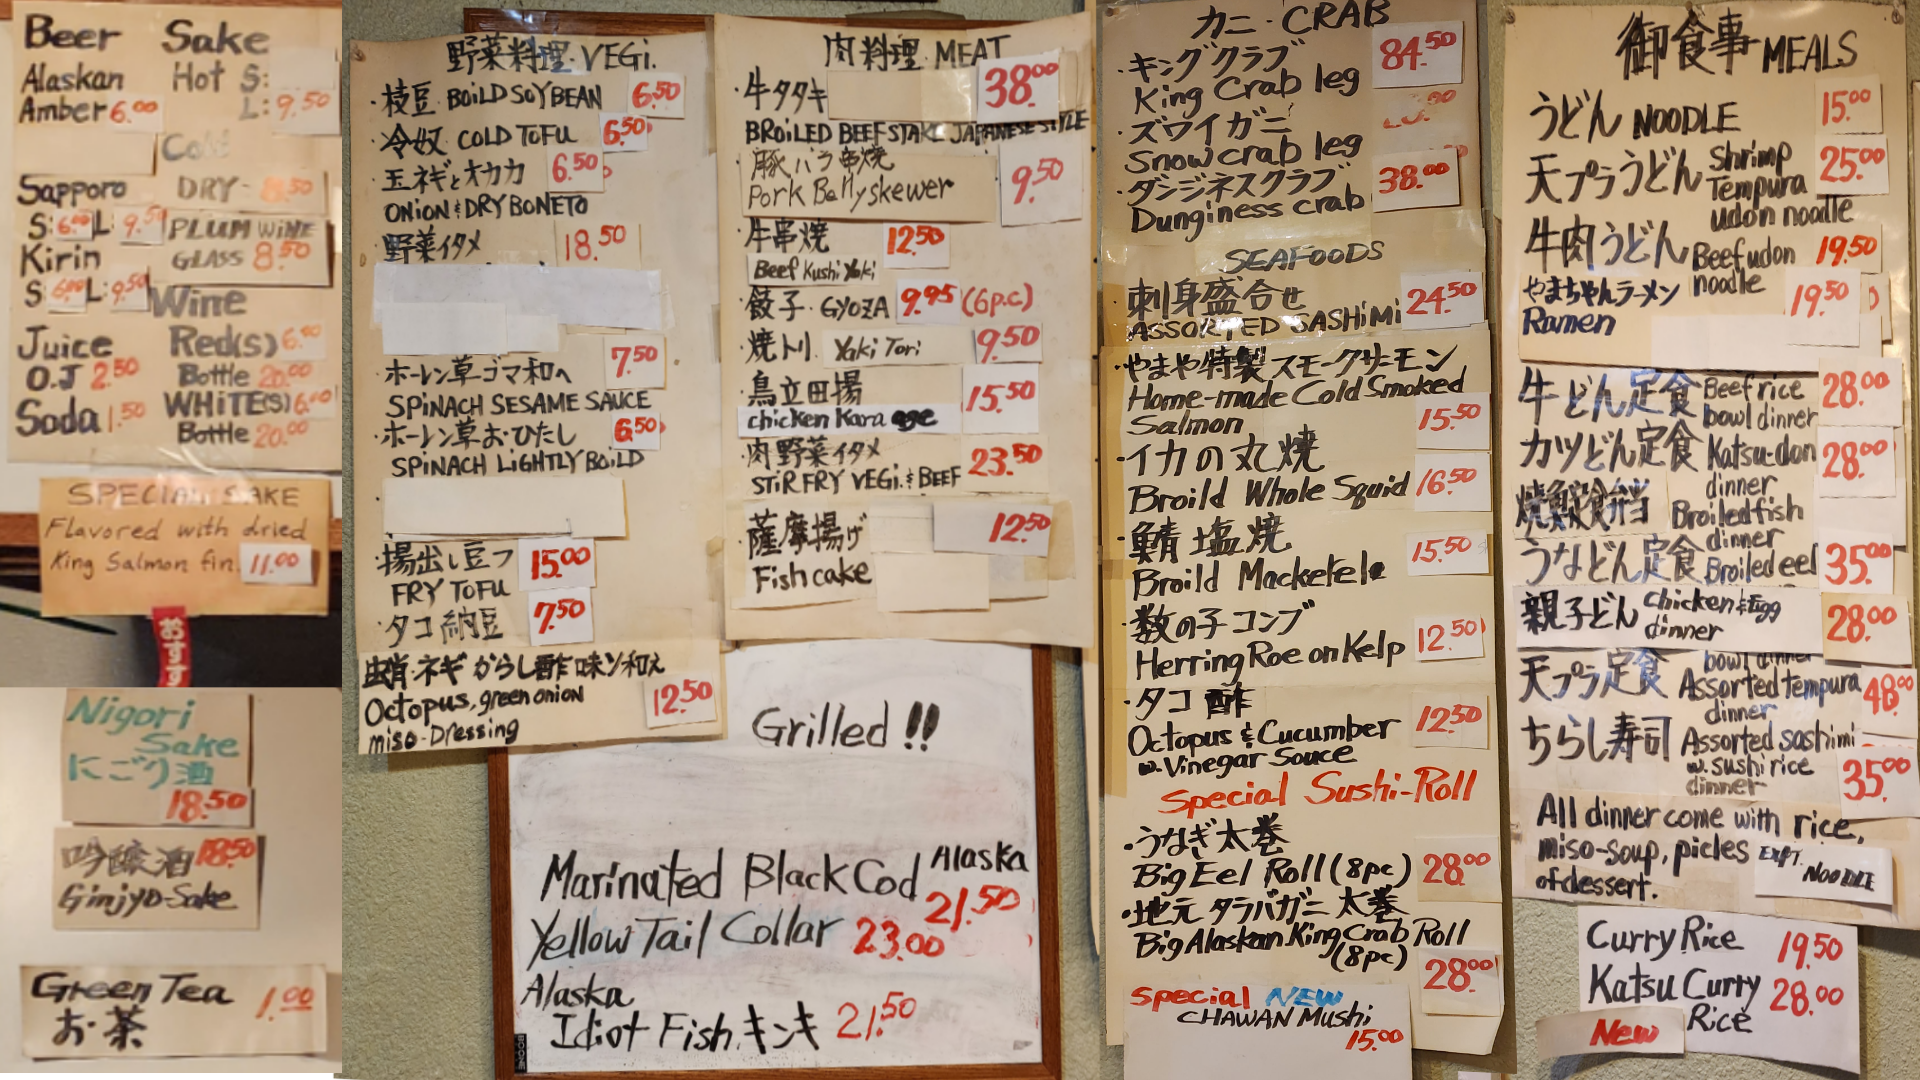 Beer
Alaskan
Amber 6.00
Sapporo
S: 6.00 L: 9.50
Kirin
S: 6.00 L: 9.50
Juice
O.J 2.50
Soda 1.50
Sake
Hot S:
L: 9.50
Cold
DRY- 8.50
PLUM WINE
GLASS 8.50
Wine
Red(s) 6.00
Bottle 20.00
WHITE(S) 6.00
Bottle 20.00
SPECIAL SAKE
Flavored with dried
King Salmon fin. 11.00
おすす
Nigori
Sake
にごり酒
18.50
吟醸酒 18.50
Ginjyo-Sake
Green Tea
お茶 1.00
野菜料理・VEGI.
・枝豆 BOILD SOYBEAN 6.50
・冷奴 COLD TOFU 6.50
・玉ネギとオカカ 6.50
ONION & DRY BONETO
・野菜イタメ 18.50
・ホーレン草ゴマ和へ 7.50
SPINACH SESAME SAUCE
・ホーレン草おひたし 6.50
SPINACH LIGHTLY BOILD
・揚出し豆フ 15.00
FRY TOFU
・タコ納豆 7.50
蛸・ネギからし酢味ソ和え
Octopus, green onion 12.50
miso-Dressing
肉料理・MEAT
・牛タタキ 38.00
BROILED BEEF STAKE JAPANESE STYLE
豚バラ串焼
Pork Bellyskewer 9.50
・牛串焼 12.50
Beef Kushi Yaki
・餃子・GYOZA 9.95 (6p.c)
・焼トリ Yaki Tori 9.50
・鳥立田揚 15.50
chicken Kara age
・肉野菜イタメ 23.50
STIR FRY VEGI. & BEEF
・薩摩揚げ 12.50
Fish cake
Grilled !!
Marinated Black Cod Alaska
21.50
Yellow Tail Collar 23.00
Alaska
Idiot Fish キンキ 21.50
カニ・CRAB
・キングクラブ 84.50
King Crab leg
・ズワイガニ
Snow crab leg
・ダンジネスクラブ 38.00
Dunginess crab
SEAFOODS
・刺身盛合せ 24.50
ASSORTED SASHIMI
・やまや特製スモークサーモン
Home-made Cold Smoked
Salmon 15.50
・イカの丸焼
Broild Whole Squid 16.50
・鯖塩焼 15.50
Broild Mackerel
・数の子コンブ
Herring Roe on Kelp 12.50
・タコ酢 12.50
Octopus & Cucumber
w. Vinegar Souce
Special Sushi-Roll
・うなぎ太巻
Big Eel Roll (8pc) 28.00
・地元タラバガニ太巻
Big Alaskan King Crab Roll
(8pc) 28.00
Special NEW
CHAWAN Mushi
15.00
御食事 MEALS
うどん NOODLE 15.00
天プラうどん Shrimp Tempura udon noodle 25.00
牛肉うどん Beef udon noodle 19.50
やまちゃんラーメン 19.50
Ramen
牛どん定食 Beef rice bowl dinner 28.00
カツどん定食 Katsu-don dinner 28.00
Broiled fish dinner
うなどん定食 Broiled eel 35.00
親子どん chicken & Egg dinner 28.00
bowl dinner
天プラ定食 Assorted tempura dinner 48.00
ちらし寿司 Assorted sashimi w. sushi rice dinner 35.00
All dinner come with rice,
miso-soup, picles Expt. NOODLE
of dessert.
Curry Rice 19.50
Katsu Curry Rice 28.00
New